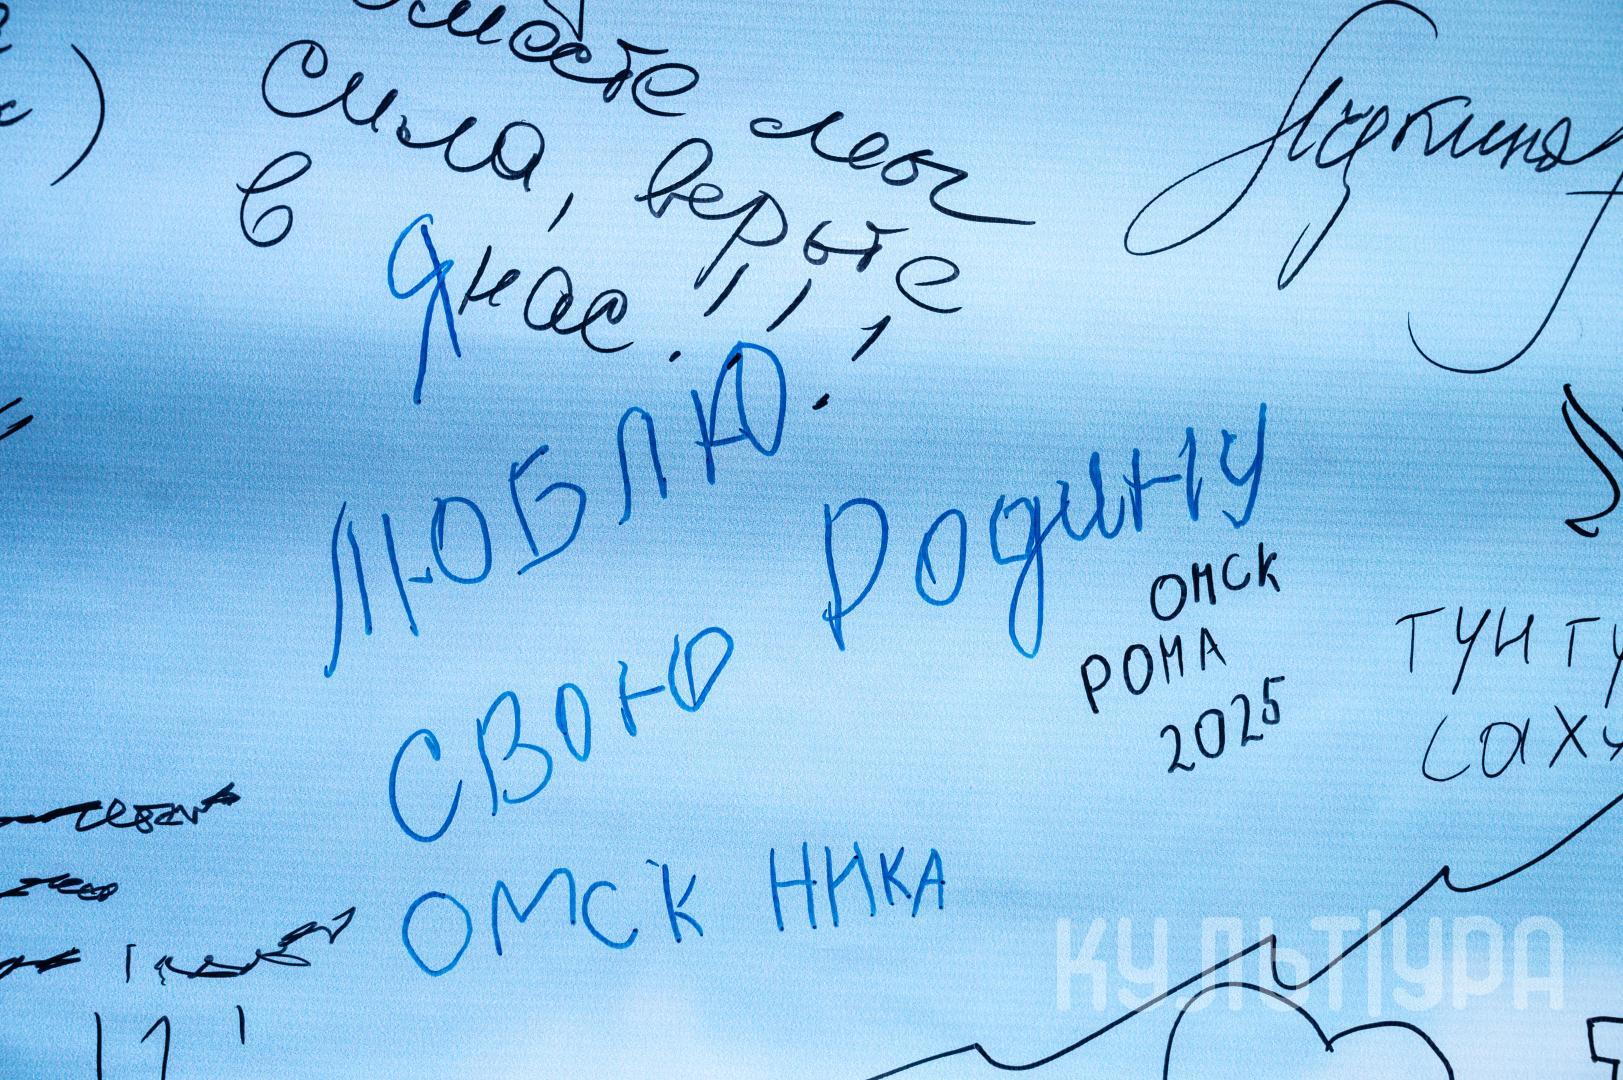 вместе мы
сила, верьте
в нас!!!
Я
ЛЮБЛЮ
СВОЮ РОДИНУ
ОМСК НИКА
ОМСК
РОМА
2025
ТУНГУ
САХУ
КУЛЬТУРА